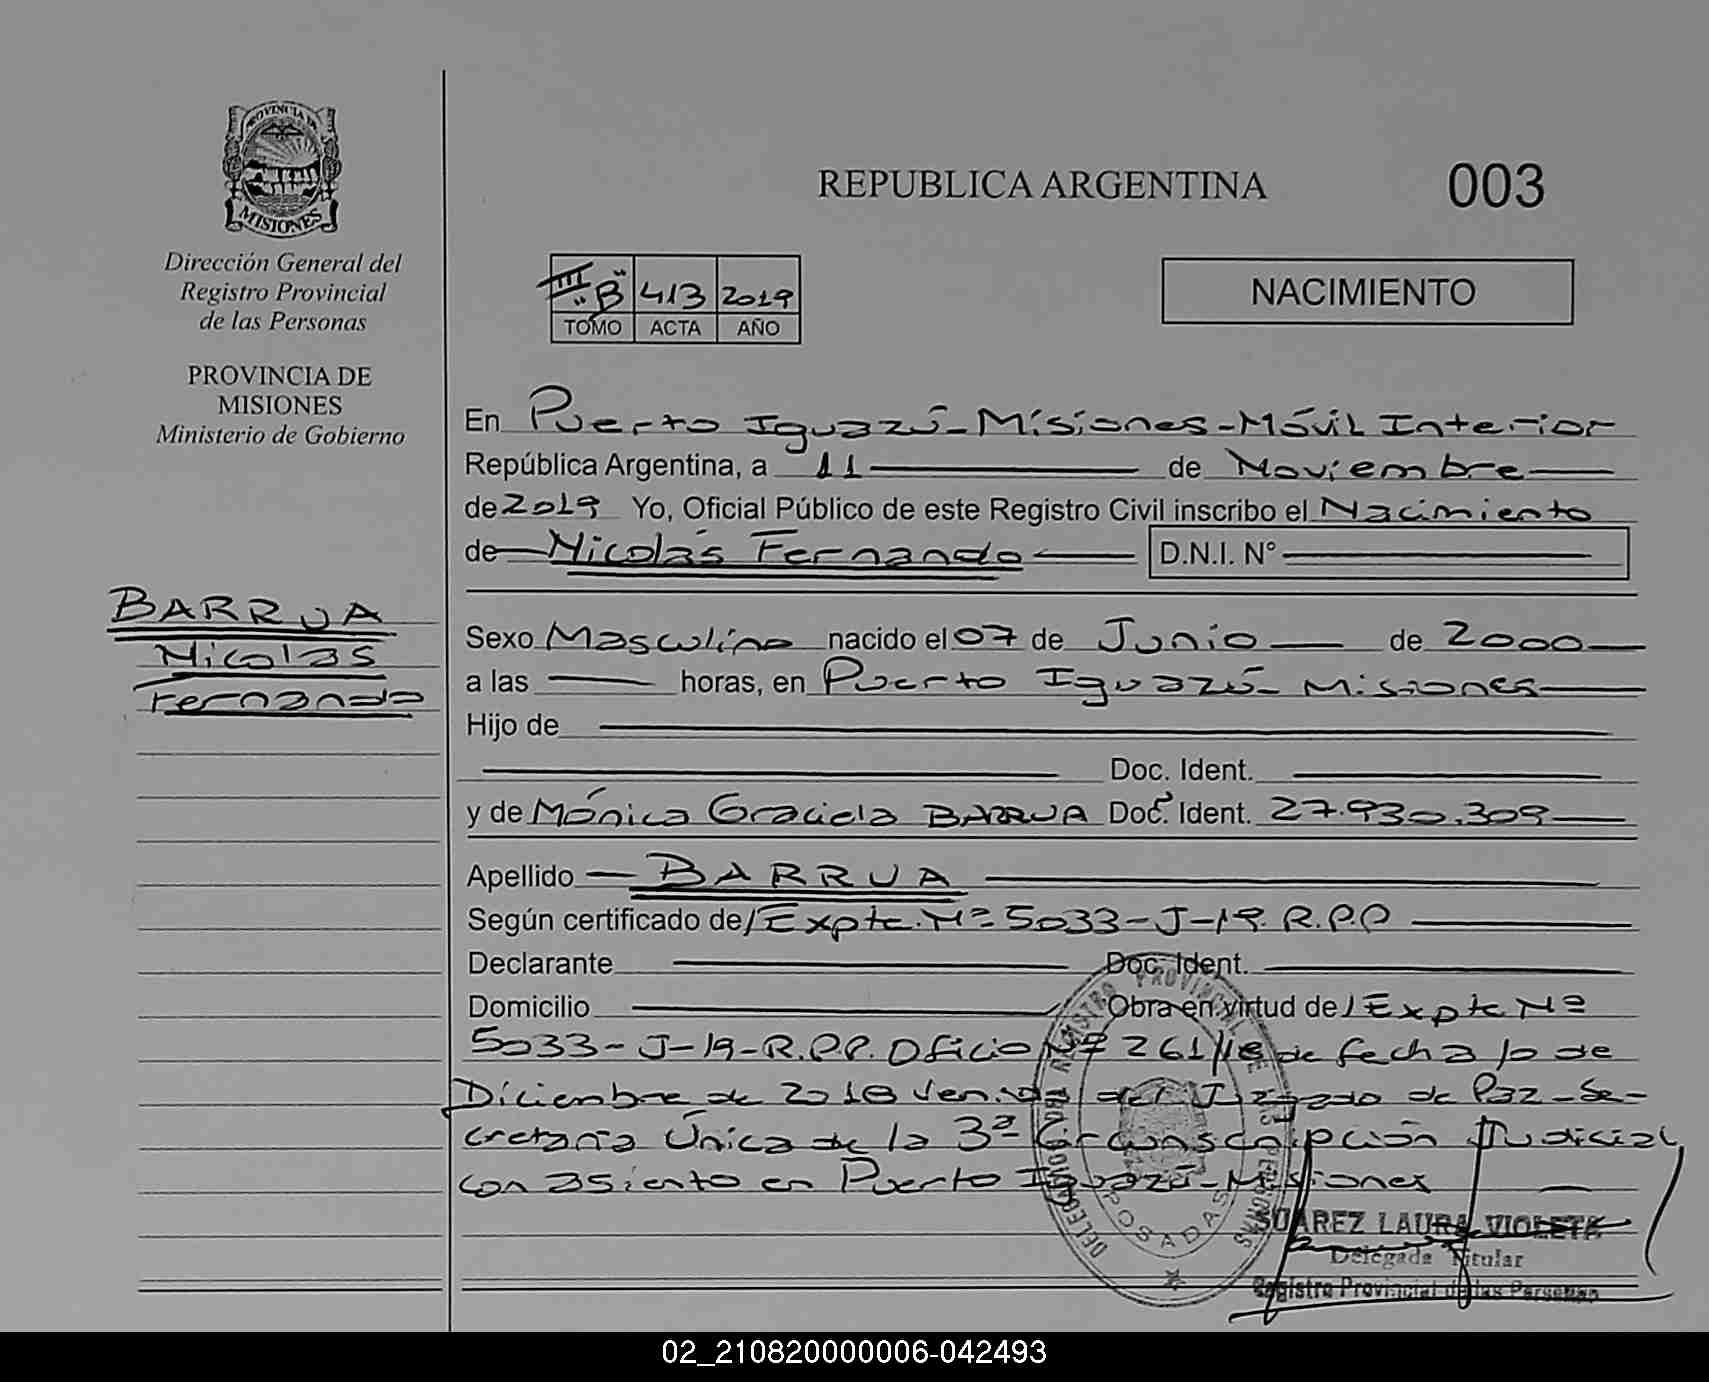 PROVINCIA DE
MISIONES
Dirección General del
Registro Provincial
de las Personas
PROVINCIA DE
MISIONES
Ministerio de Gobierno
BARRUA
Nicolás
Fernando
REPUBLICA ARGENTINA 003
III "B" 413 2019
TOMO ACTA AÑO
NACIMIENTO
En Puerto Iguazú-Misiones-Móvil Interior
República Argentina, a 11 de Noviembre
de 2019 Yo, Oficial Público de este Registro Civil inscribo el Nacimiento
de Nicolás Fernando D.N.I. N°
Sexo Masculino nacido el 07 de Junio de 2000
a las horas, en Puerto Iguazú-Misiones
Hijo de
Doc. Ident.
y de Mónica Graciela BARRUA Doc. Ident. 27.930.309
Apellido BARRUA
Según certificado de/Expte. Nº 5033-J-19. R.P.P
Declarante Doc. Ident.
Domicilio Obra en virtud de/Expte Nº
5033-J-19-R.P.P. Oficio Nº 261/18 de fecha 10 de
Diciembre de 2018 venido del Juzgado de Paz-Se-
cretaría Única de la 3ª Circunscripción Judicial
con asiento en Puerto Iguazú-Misiones
REGISTRO PROVINCIAL DE LAS PERSONAS
POSADAS
SUAREZ LAURA VIOLETA
Delegada Titular
Registro Provincial de las Personas
02_210820000006-042493